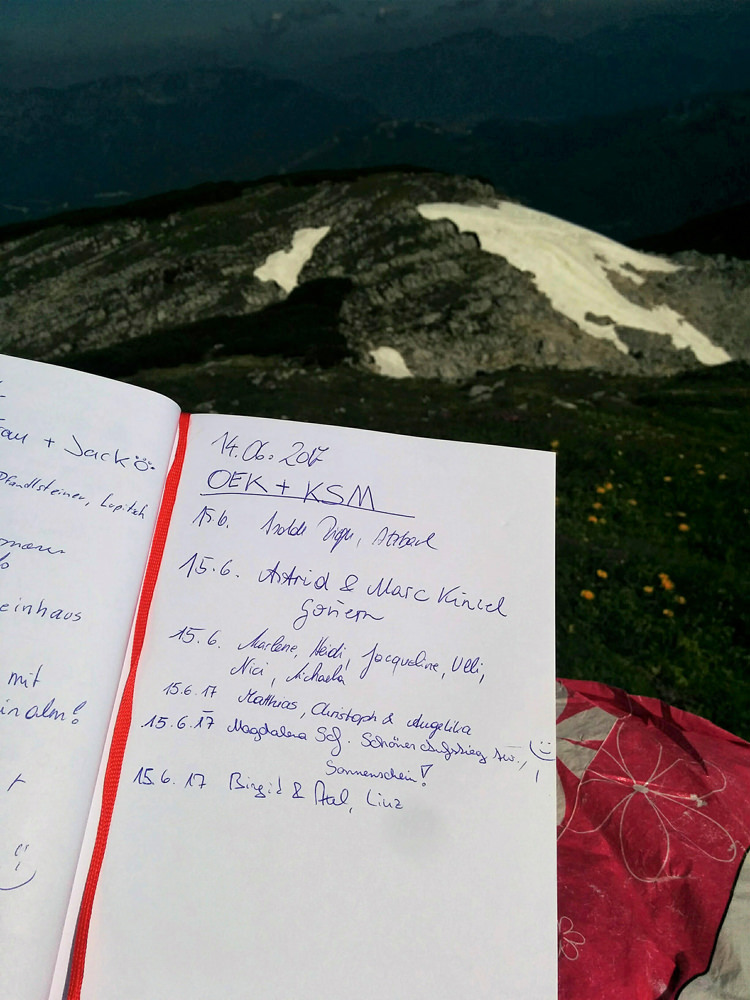 + Jacko
Pfandlsteiner, Lopitsch
einhaus
mit
inalm!
14.06.2017
OEK + KSM
15.6. Isolde
15.6. Astrid & Marc Kinzel
15.6. Marlene, Heidi, Jacqueline, Ulli,
Nici, Michaela
15.6.17 Matthias, Christoph & Angelika
15.6.17 Magdalena Sch: Schöner Aufstieg
Sonnenschein!
15.6.17 Birgit & Linz